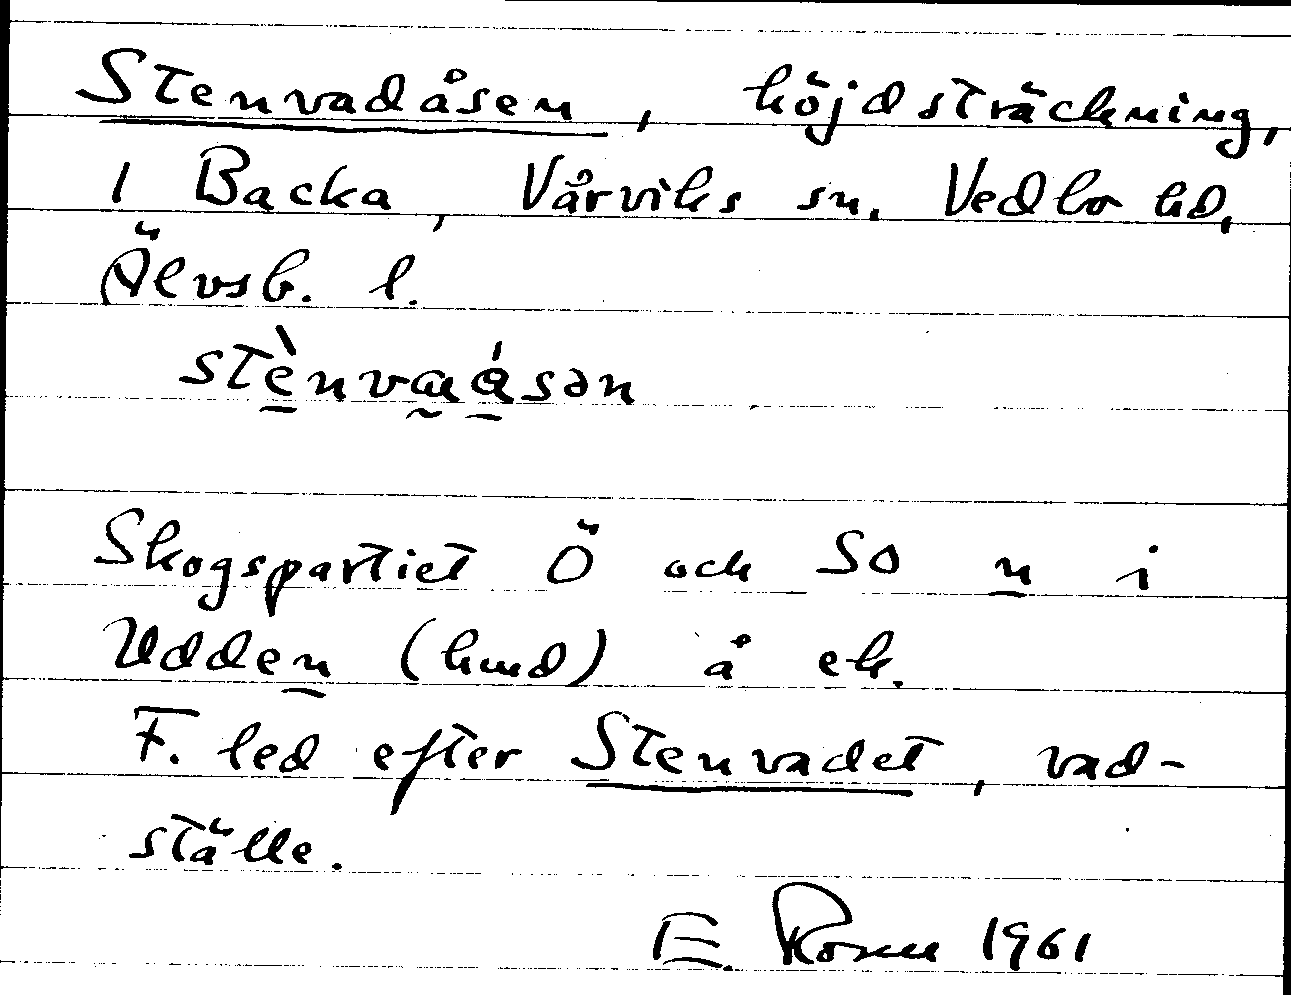 Stenvadåsen, höjdsträckning,
1 Backa, Vårviks sn. Vedbo hd,
Älvsb. l.
stènvaåsən
Skogspartiet Ö och SO n i
Udden (kmd) å ek.
F. led efter Stenvadet, vad-
ställe.
E. 1961